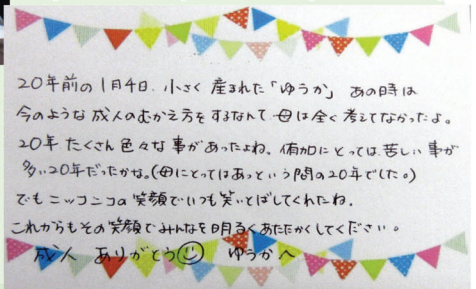 20年前の1月4日.小さく産まれた「ゆうか」あの時は
今のような成人のむかえ方をするなんて母は全く考えてなかったよ。
20年たくさん色々な事があったよね。侑加にとっては苦しい事が
多い20年だったかな。(母にとってはあっという間の20年でした。)
でもニッコニコの笑顔でいつも笑いとばしてくれたね.
これからもその笑顔でみんなを明るくあたたかくしてください。
成人 ありがとう ゆうかへ